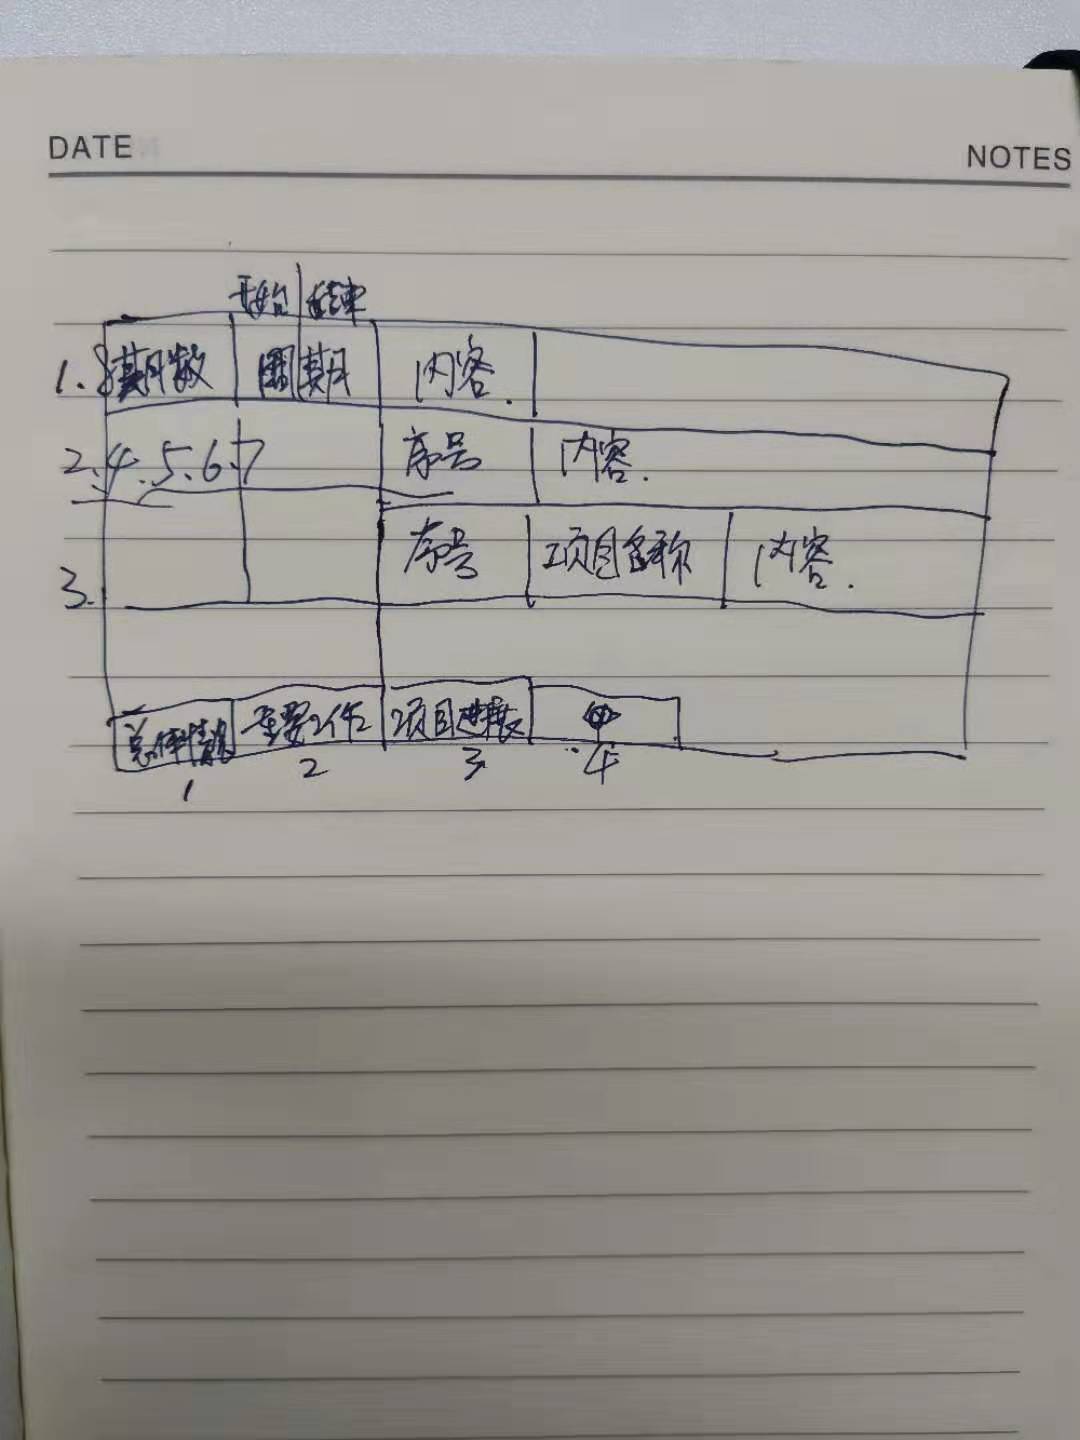 DATE
NOTES
开始 结束
1. 期数 周期 内容.
2. 4、5、6、7 序号 内容.
3. 序号 项目名称 内容.
总体情况 重要工作 项目进展
1 2 3 4